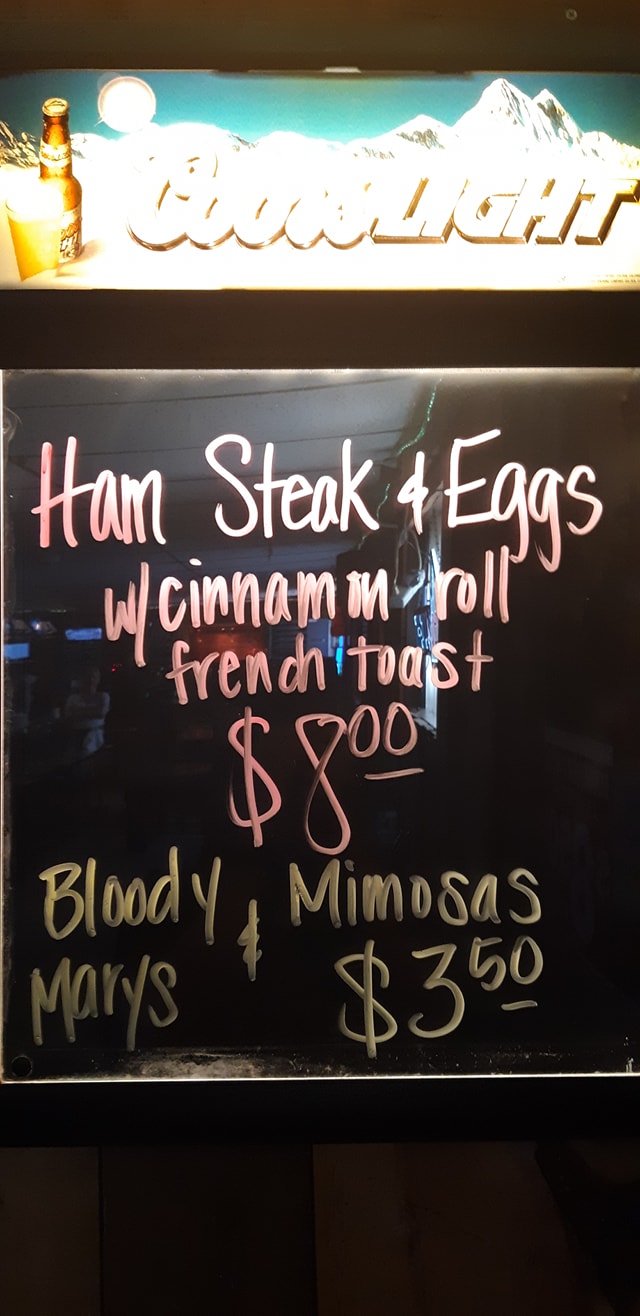 Coors LIGHT
Ham Steak & Eggs
w/ cinnamon roll
french toast
$8.00
Bloody & Mimosas
Marys $3.50